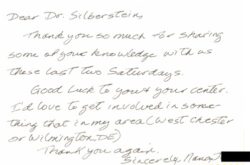 Dear Dr. Silberstein,
Thank you so much for sharing
some of your knowledge with us
these last two Saturdays.
Good Luck to you & your center.
I'd love to get involved in some-
thing that in my area (West Chester
or Wilmington, DE)
Thank you again.
Sincerely,